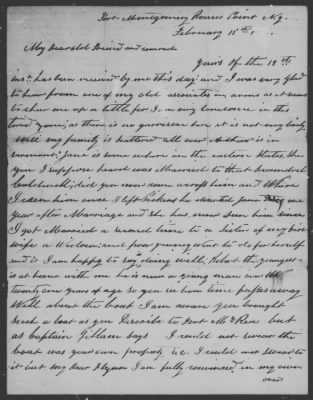 Fort Montgomery Rouses Point N.Y.
February 15th
My dear old Friend and comrade
Yours of the 12th
ins. has been received by me this day and I was very glad
to hear from one of my old associates in arms as it seems
to cheer me up a little for I am very lonesome in this
as there is no garrison here it is not very lively
my family is scattered all over Arthur is in
Jane is some where in the eastern States, she
you I suppose heard was Married to that
did you ever come across him and Where
I seen him once I left he deserted Jane
year after Marriage and she has never seen him since
I got Married a second time to a Sister of my first
Wife a Widow, and poor young went to do for herself
and is I am happy to say doing well, Robert the youngest
is at home with me he is now a young man over
twenty one years of age so you see how time passes away
Well about the boat I am aware you bought
such a boat as you Describe to Fort McRea but
as Captain Gillam says I could not swear the
boat was your own property &c. I could not swear to
it but my dear I am fully convinced in my own
over